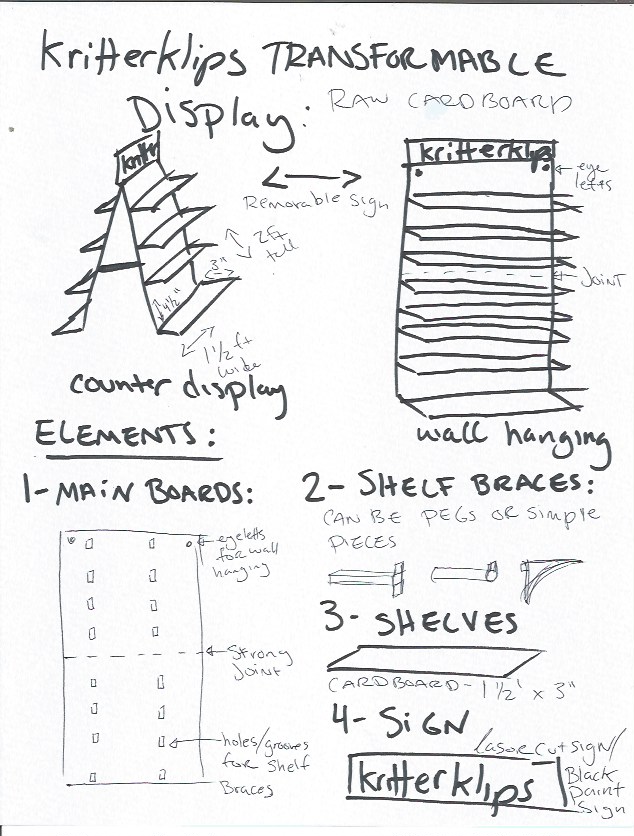 Kritterklips TRANSFORMABLE
Display: RAW CARDBOARD
Kritter
kritterklips
eye
letts
Removable sign
2ft
tall
3"
4 1/2"
1 1/2 ft
wide
JOINT
counter display
wall hanging
ELEMENTS:
1- MAIN BOARDS:
eyeletts
for wall
hanging
Strong
Joint
holes/grooves
for shelf
Braces
2- SHELF BRACES:
CAN BE PEGS OR Simple
PIECES
3- SHELVES
CARDBOARD - 1 1/2' x 3"
4- SIGN
Lasor cut sign/
Black
paint
sign
kritterklips